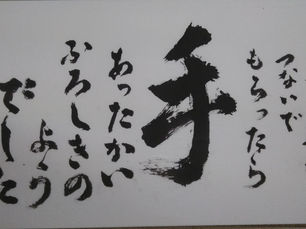 つないで
もらったら
手
あったかい
ふろしきの
よう
でした